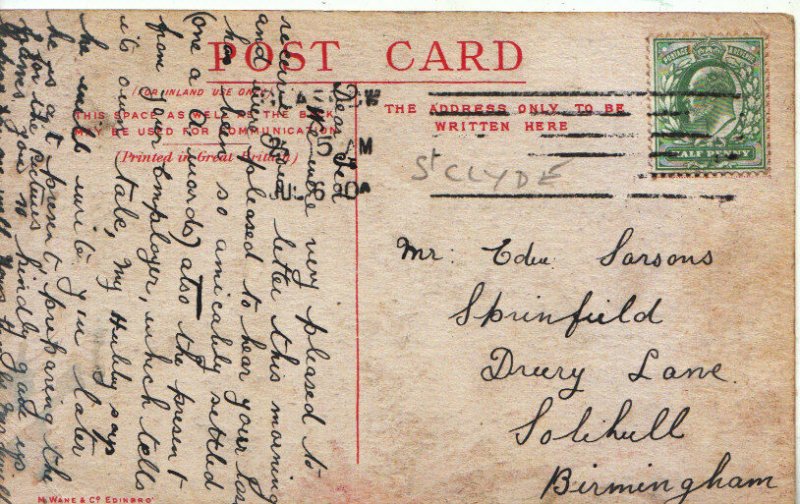 POST CARD
(FOR INLAND USE ONLY)
THIS SPACE AS WELL AS THE BACK
MAY BE USED FOR COMMUNICATION
(Printed in Great Britain)
THE ADDRESS ONLY TO BE
WRITTEN HERE
POSTAGE & REVENUE
HALF PENNY
St CLYDE
Dear Ted
Were very pleased to
receive your letter this morning
and pleased to hear your loss
has been so amicably settled
(one a words) also the present
from your Employer, which tells
its own tale, My Hubby says
he will write you later
he is at present preparing the
for the Pictures
you so kindly gave up
Mr: Edw Sarsons
Sprinfield
Drury Lane.
Solihull
Birmingham
M. WANE & Co EDINBRO'